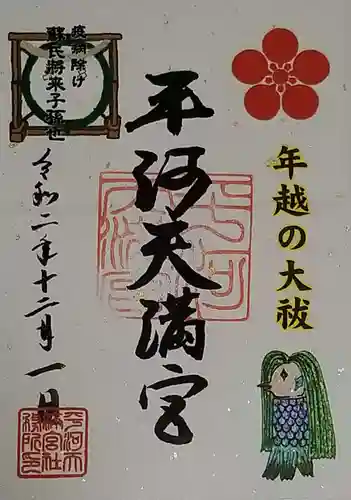 年越の大祓
平河天満宮
疫病除け
蘇民将来子孫也
令和二年十二月一日